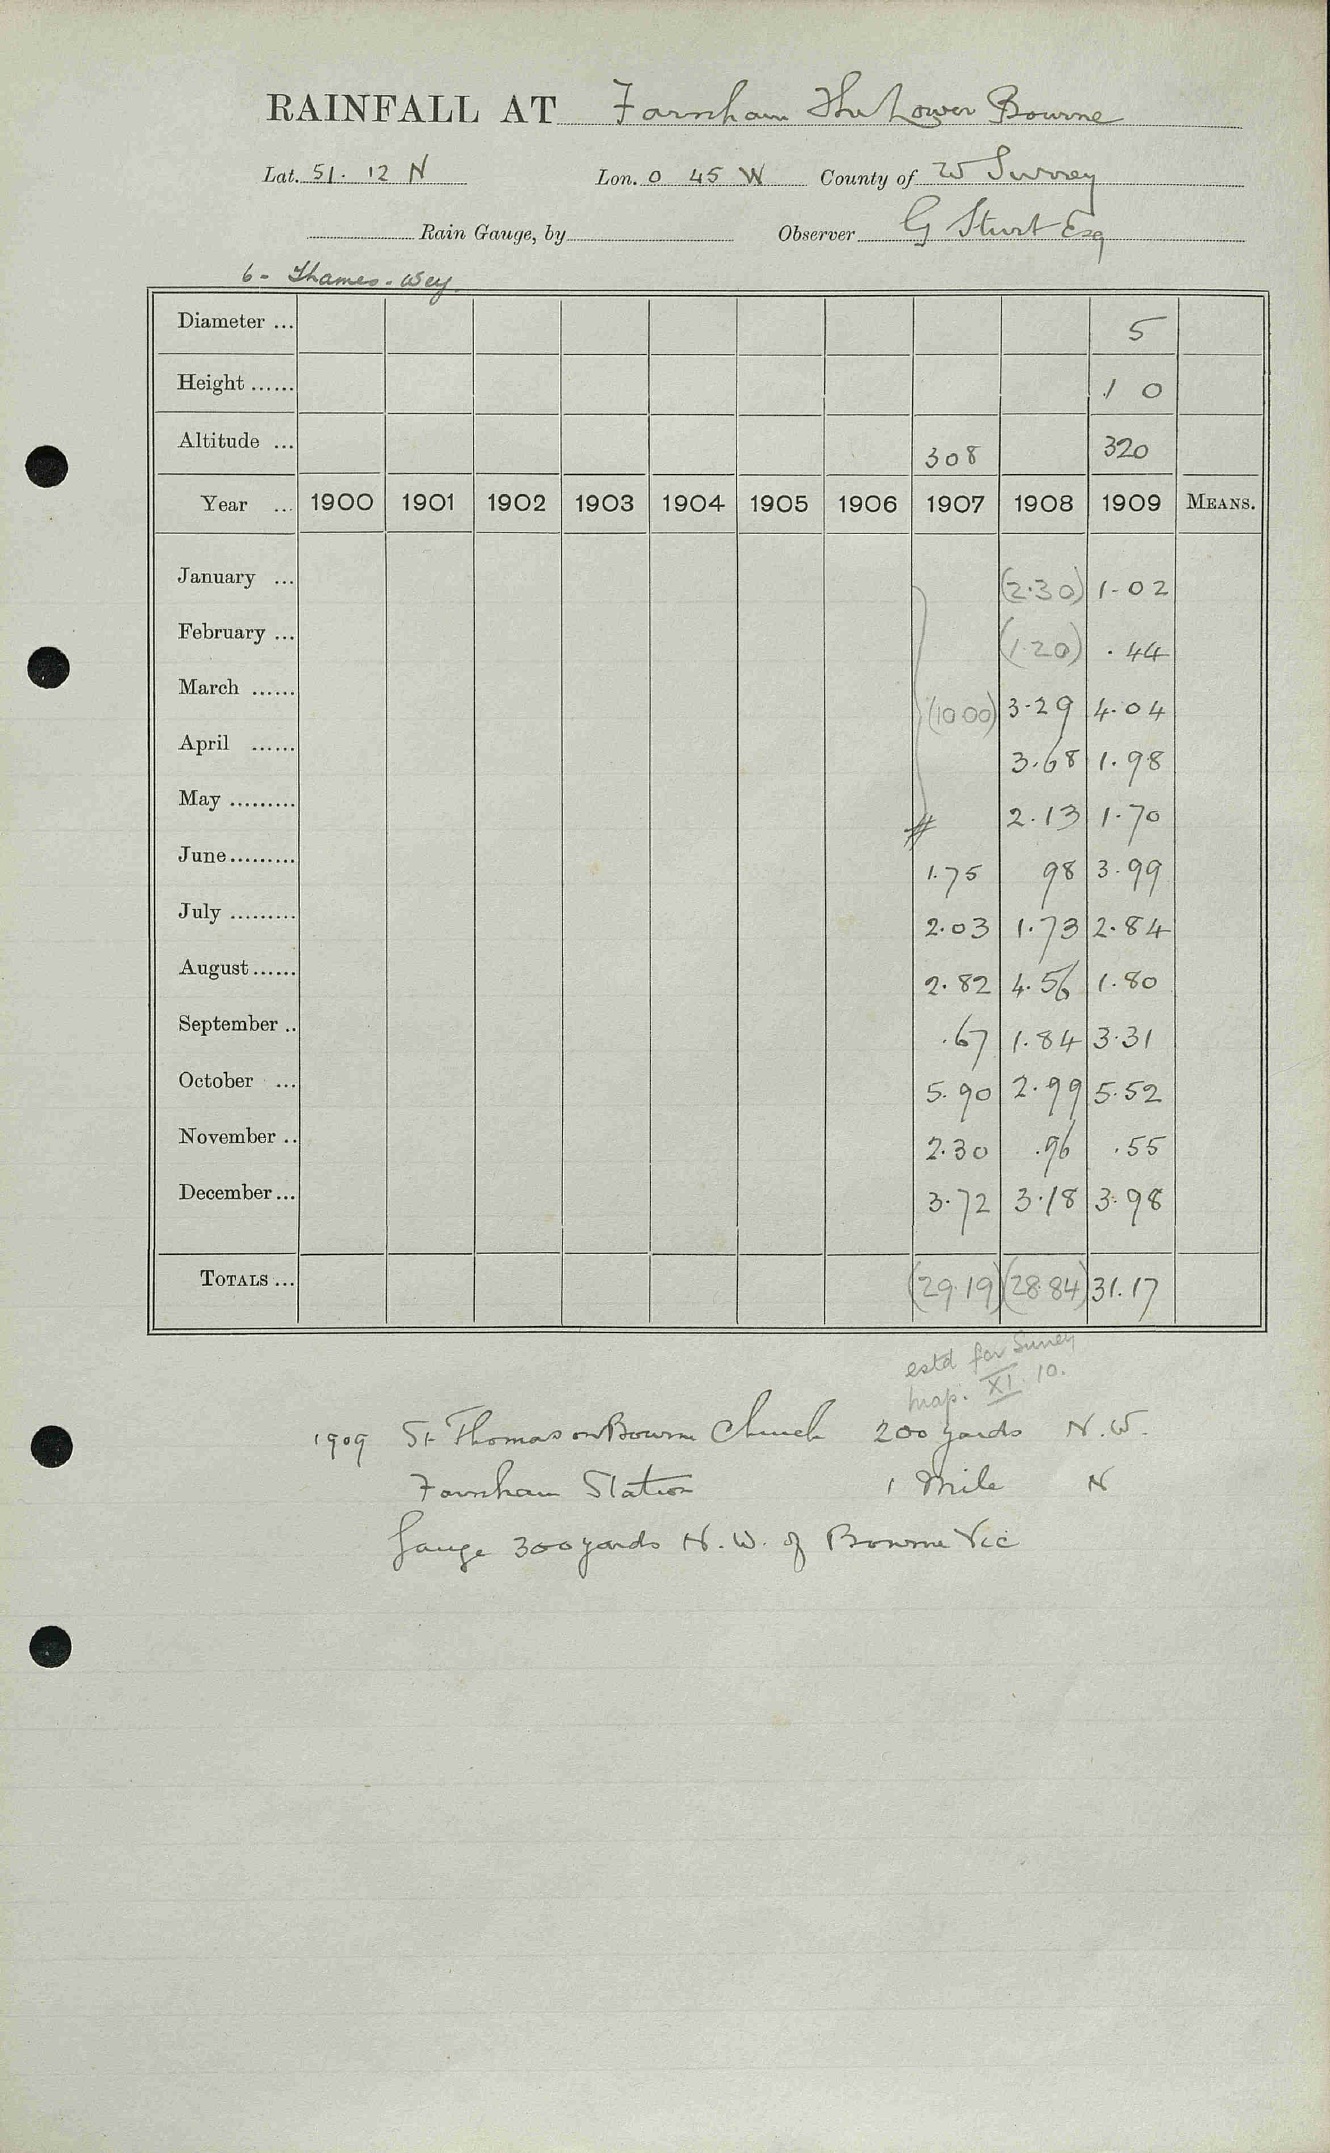 RAINFALL AT Farnham The Lower Bourne
Lat. 51. 12 N Lon. 0 45 W County of W Surrey
Rain Gauge, by Observer G Sturt Esq
6 - Thames - Wey.
Diameter ... 5
Height ...... 1 0
Altitude ... 308 320
Year ... 1900 1901 1902 1903 1904 1905 1906 1907 1908 1909 MEANS.
January ... (2.30) 1.02
February ... (1.20) .44
March ...... (10.00) 3.29 4.04
April ...... 3.68 1.98
May ......... 2.13 1.70
June......... 1.75 98 3.99
July ......... 2.03 1.73 2.84
August...... 2.82 4.56 1.80
September .. .67 1.84 3.31
October ... 5.90 2.99 5.52
November .. 2.30 .96 .55
December... 3.72 3.18 3.98
TOTALS ... (29.19) (28.84) 31.17
estd for Surrey
map. XI. 10.
1909 St Thomas on Bourne Church 200 yards N.W.
Farnham Station 1 Mile N
Gauge 300 yards N.W. of Bourne Vic